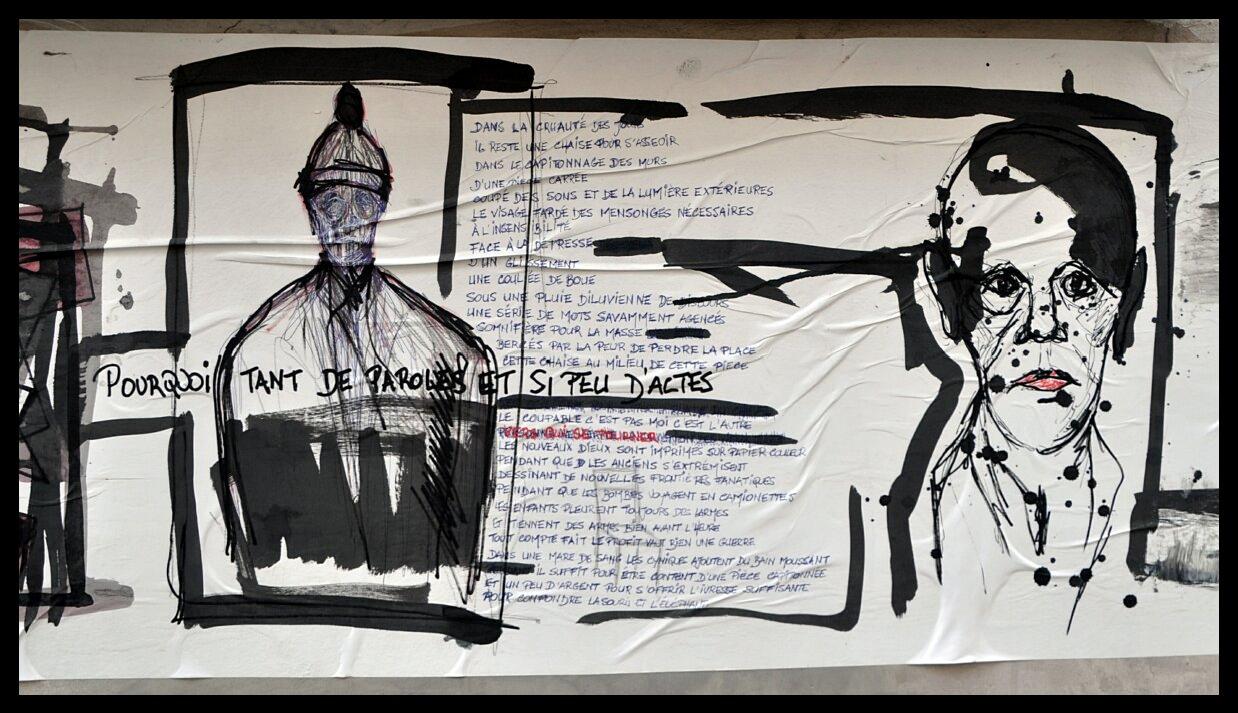 DANS LA CRUAUTÉ DES JOURS
IL RESTE UNE CHAISE POUR S'ASSEOIR
DANS LE CAPITONNAGE DES MURS
D'UNE PIÈCE CARRÉE
COUPÉ DES SONS ET DE LA LUMIÈRE EXTÉRIEURES
LE VISAGE FARDÉ DES MENSONGES NÉCESSAIRES
À L'INSENSIBILITÉ
FACE À LA DÉTRESSE
D'UN GLISSEMENT
UNE COULÉE DE BOUE
SOUS UNE PLUIE DILUVIENNE DE DISCOURS
UNE SÉRIE DE MOTS SAVAMMENT AGENCÉS
SOMNIFÈRE POUR LA MASSE
BERCÉS PAR LA PEUR DE PERDRE LA PLACE
CETTE CHAISE AU MILIEU DE CETTE PIÈCE
POURQUOI TANT DE PAROLES ET SI PEU D'ACTES
LE COUPABLE C'EST PAS MOI C'EST L'AUTRE
LES NOUVEAUX DIEUX SONT IMPRIMÉS SUR PAPIER COULEUR
PENDANT QUE LES ANCIENS S'EXTRÉMISENT
DESSINANT DE NOUVELLES FRONTIÈRES FANATIQUES
PENDANT QUE LES BOMBES VOYAGENT EN CAMIONNETTES
LES ENFANTS PLEURENT TOUJOURS DES LARMES
ET TIENNENT DES ARMES BIEN AVANT L'HEURE
TOUT COMPTE FAIT LE PROFIT VAUT BIEN UNE GUERRE
DANS UNE MARE DE SANG LES CYNIQUE AJOUTENT DU BAIN MOUSSANT
IL SUFFIT POUR ÊTRE CONTENT D'UNE PIÈCE CAPITONNÉE
ET UN PEU D'ARGENT POUR S'OFFRIR L'IVRESSE SUFFISANTE
POUR CONFONDRE LA SOURIS ET L'ÉLÉPHANT